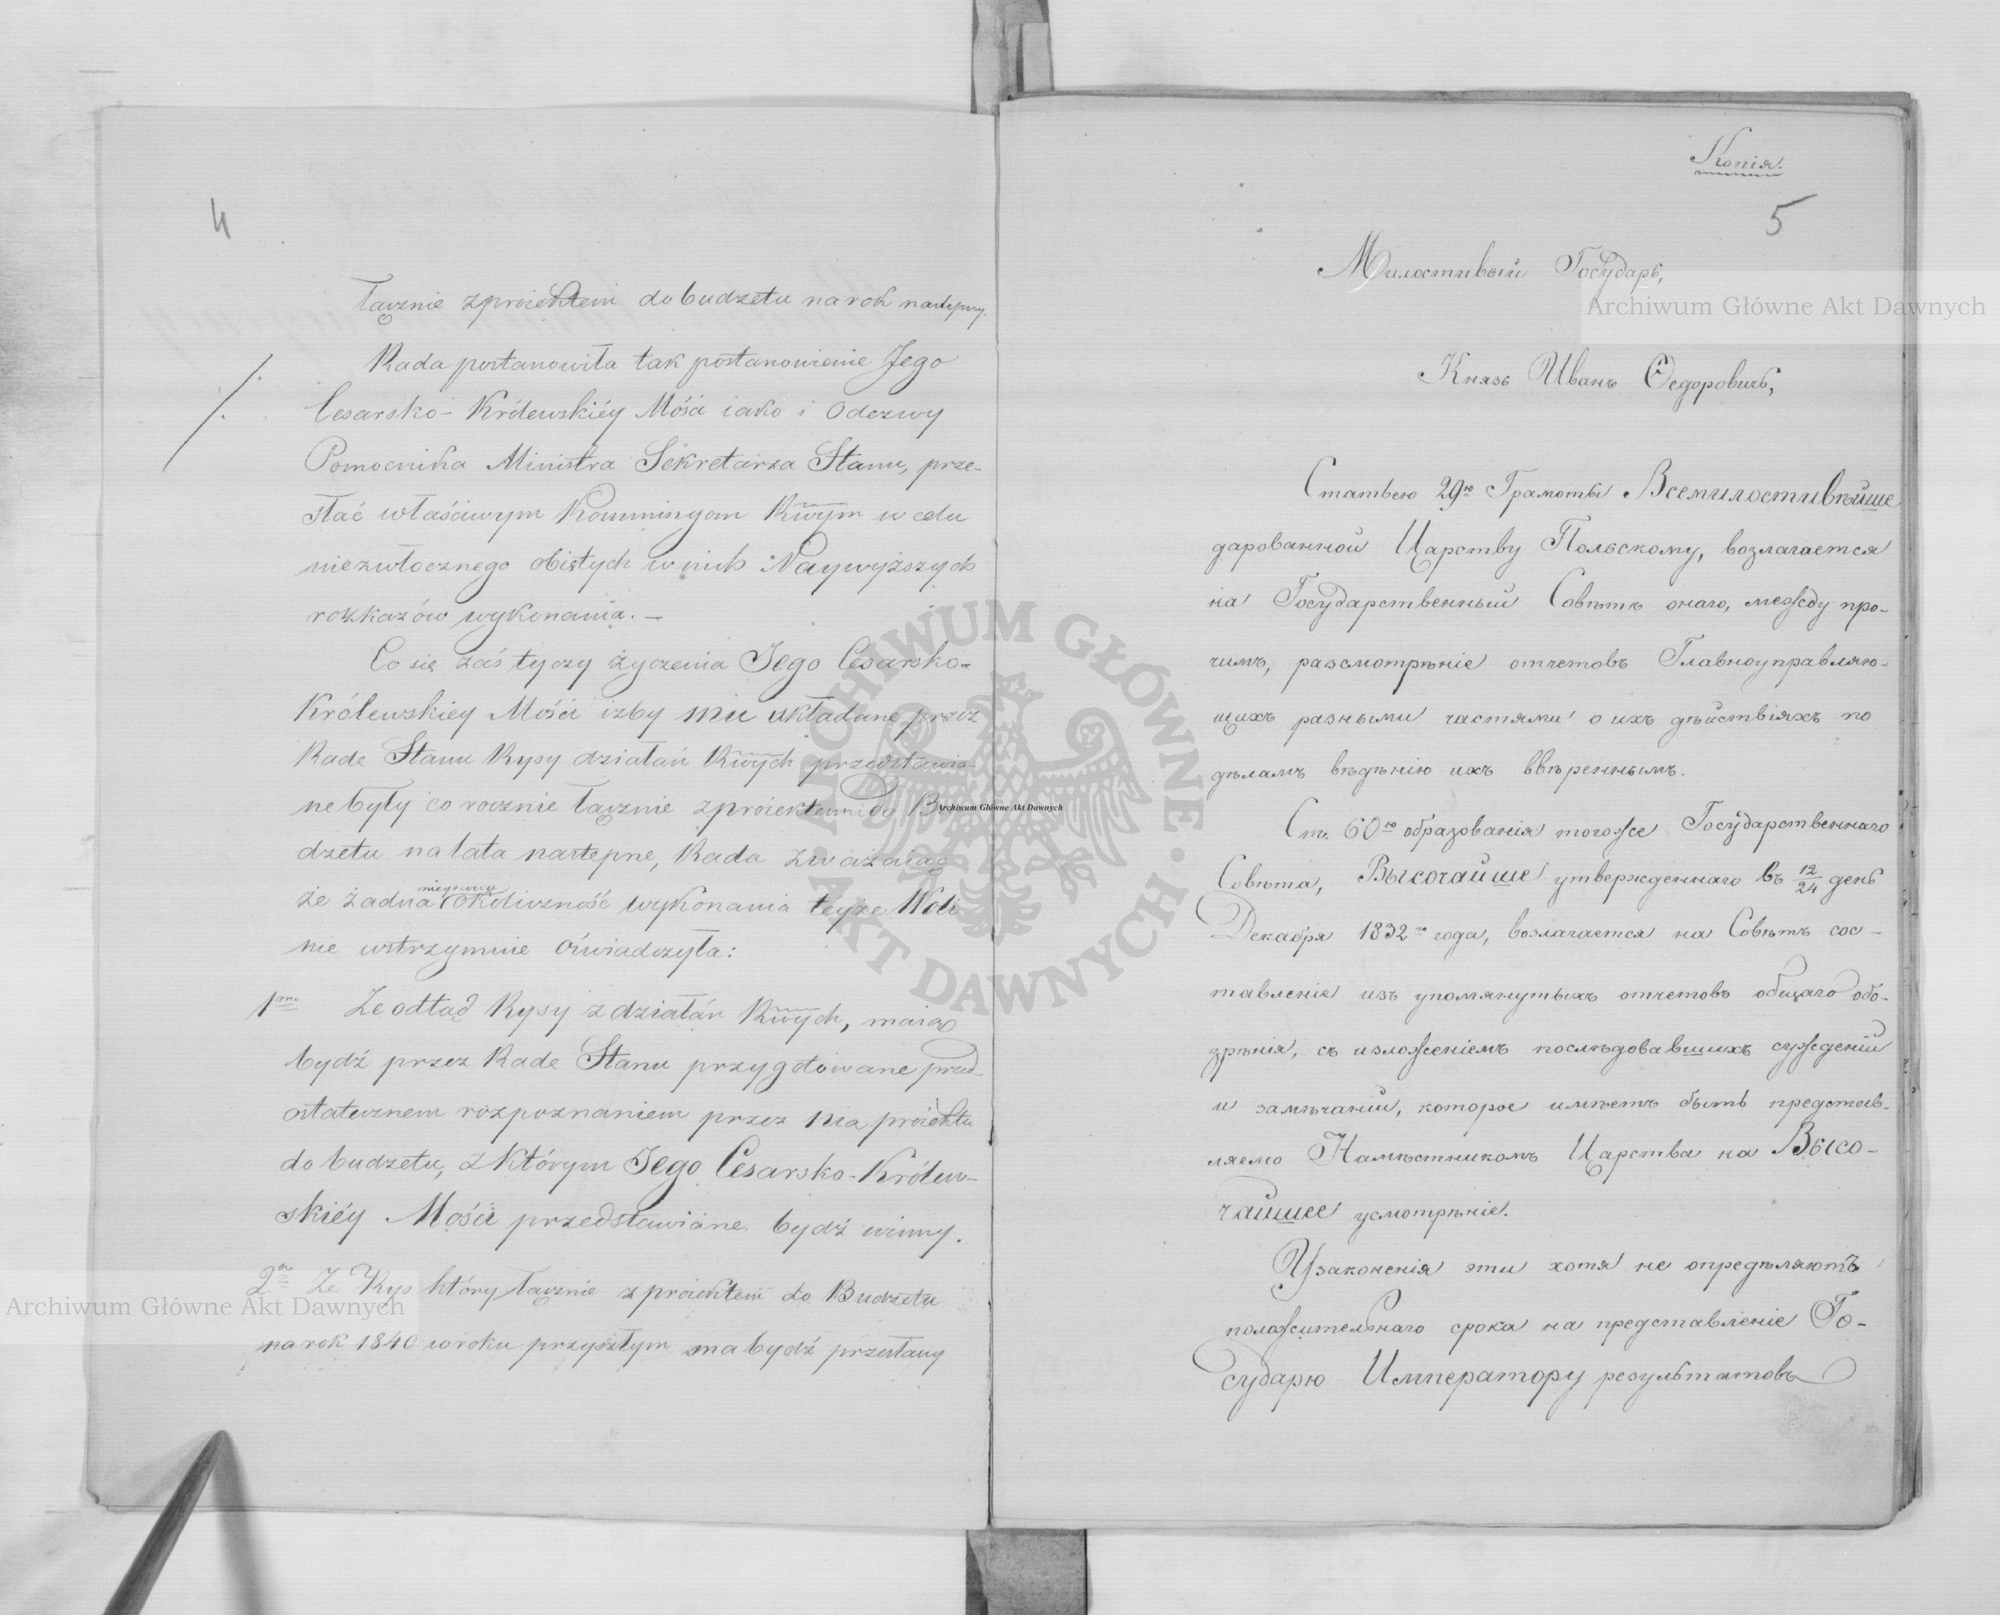 4
łącznie z proiektem do budżetu na rok następny.
Rada postanowiła tak postanowienie Jego
Cesarsko-Królewskiéy Mości iako i Odezwy
Pomocnika Ministra Sekretarza Stanu, prze-
słać właściwym Kommissyom Rwym w celu
niezwłocznego obiętych w nich Naywyższych
rozkazów wykonania. —
Co się zaś tyczy życzenia Jego Cesarsko-
Królewskiey Mości iżby mu układane przez
Radę Stanu Rysy działań Rwych przedstawia-
ne były corocznie łącznie z proiektem do Bu
dżetu na lata następne, Rada zważaiąc
że żadna mieyscowa okoliczność wykonania teyże Woli
nie wstrzymuie oświadczyła:
1mo Że odtąd Rysy z działań Rwych, maią
bydź przez Radę Stanu przygotowane przed
ostatecznem rozpoznaniem przez nią proiektu
do budżetu, z którym Jego Cesarsko-Królew-
skiéy Mości przedstawiane bydź winny.
2o Że Rys który łącznie z proiektem do Budżetu
na rok 1840 w roku przyszłym ma bydź przesłany
Копія.
5
Милостивый Государь,
Князь Иванъ Ѳедоровичь,
Статьею 29ю Грамоты Всемилостивѣйше
дарованной Царству Польскому, возлагается
на Государственный Совѣтъ онаго, между про-
чимъ, разсмотрѣніе отчетовъ Главноуправляю-
щихъ разными частями о ихъ дѣйствіяхъ по
дѣламъ вѣдѣнію ихъ ввѣреннымъ.
Ст. 60ю образованія тогоже Государственнаго
Совѣта, Высочайше утвержденнаго въ 12/24 день
Декабря 1832го года, возлагается на Совѣтъ сос-
тавленіе изъ упомянутыхъ отчетовъ общаго обо-
зрѣнія, съ изложеніемъ послѣдовавшихъ сужденій
и замѣчаній, которое имѣетъ быть представ-
ляемо Намѣстникомъ Царства на Высо-
чайшее усмотрѣніе.
Узаконенія эти хотя не опредѣляютъ
положительнаго срока на представленіе Го-
сударю Императору результатовъ
Archiwum Główne Akt Dawnych
Archiwum Główne Akt Dawnych
Archiwum Główne Akt Dawnych
ARCHIWUM GŁÓWNE · AKT DAWNYCH ·